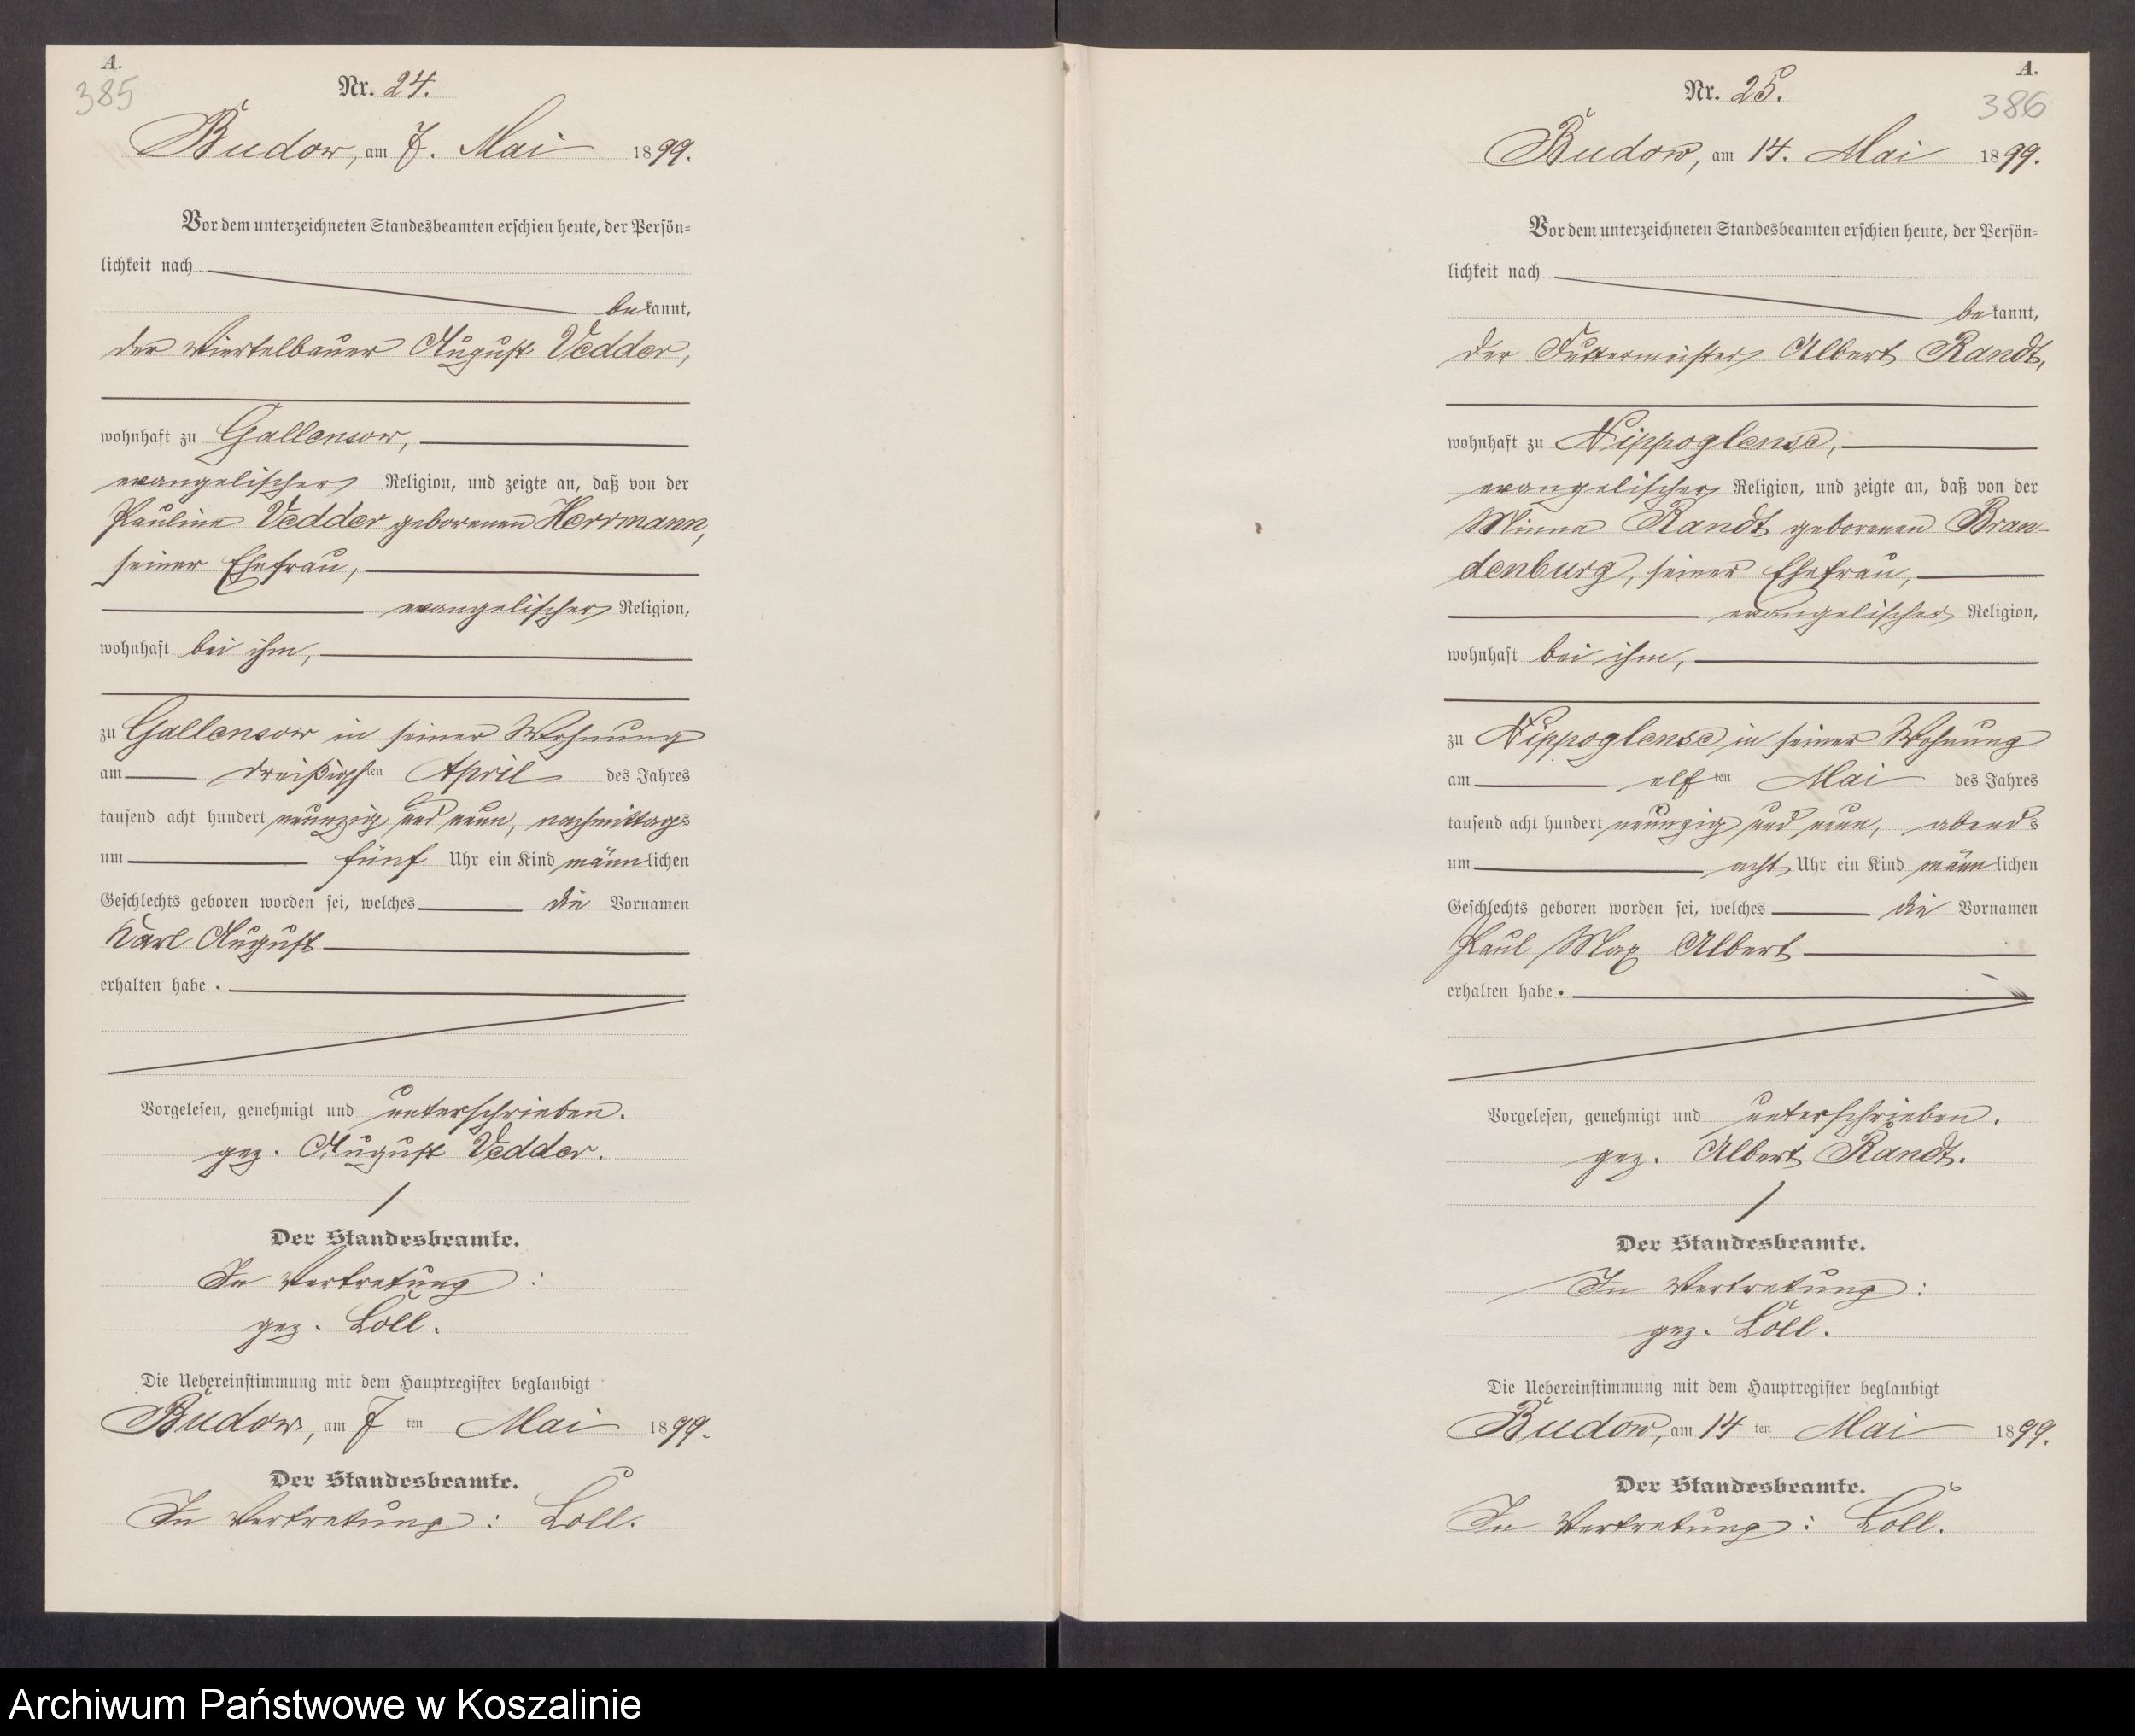 A.
385
Nr. 24.
Budow, am 7. Mai 1899.
Vor dem unterzeichneten Standesbeamten erschien heute, der Persön-
lichkeit nach
bekannt,
der Viertelbauer August Vedder,
wohnhaft zu Gallensow,
evangelischer Religion, und zeigte an, daß von der
Pauline Vedder geborenen Herrmann,
seiner Ehefrau,
evangelischer Religion,
wohnhaft bei ihm,
zu Gallensow in seiner Wohnung
am dreißigsten April des Jahres
tausend acht hundert neunzig und neun, nachmittags
um fünf Uhr ein Kind männlichen
Geschlechts geboren worden sei, welches die Vornamen
Karl August
erhalten habe.
Vorgelesen, genehmigt und unterschrieben.
gez. August Vedder.
Der Standesbeamte.
In Vertretung:
gez. Loll.
Die Uebereinstimmung mit dem Hauptregister beglaubigt
Budow, am 7ten Mai 1899.
Der Standesbeamte.
In Vertretung: Loll.
A.
386
Nr. 25.
Budow, am 14. Mai 1899.
Vor dem unterzeichneten Standesbeamten erschien heute, der Persön-
lichkeit nach
bekannt,
der Futtermeister Albert Randt,
wohnhaft zu Nippoglense,
evangelischer Religion, und zeigte an, daß von der
Minna Randt geborenen Bran-
denburg, seiner Ehefrau,
evangelischer Religion,
wohnhaft bei ihm,
zu Nippoglense in seiner Wohnung
am elften Mai des Jahres
tausend acht hundert neunzig und neun, abends
um acht Uhr ein Kind männlichen
Geschlechts geboren worden sei, welches die Vornamen
Paul Max Albert
erhalten habe.
Vorgelesen, genehmigt und unterschrieben.
gez. Albert Randt.
Der Standesbeamte.
In Vertretung:
gez. Loll.
Die Uebereinstimmung mit dem Hauptregister beglaubigt
Budow, am 14ten Mai 1899.
Der Standesbeamte.
In Vertretung: Loll.
Archiwum Państwowe w Koszalinie